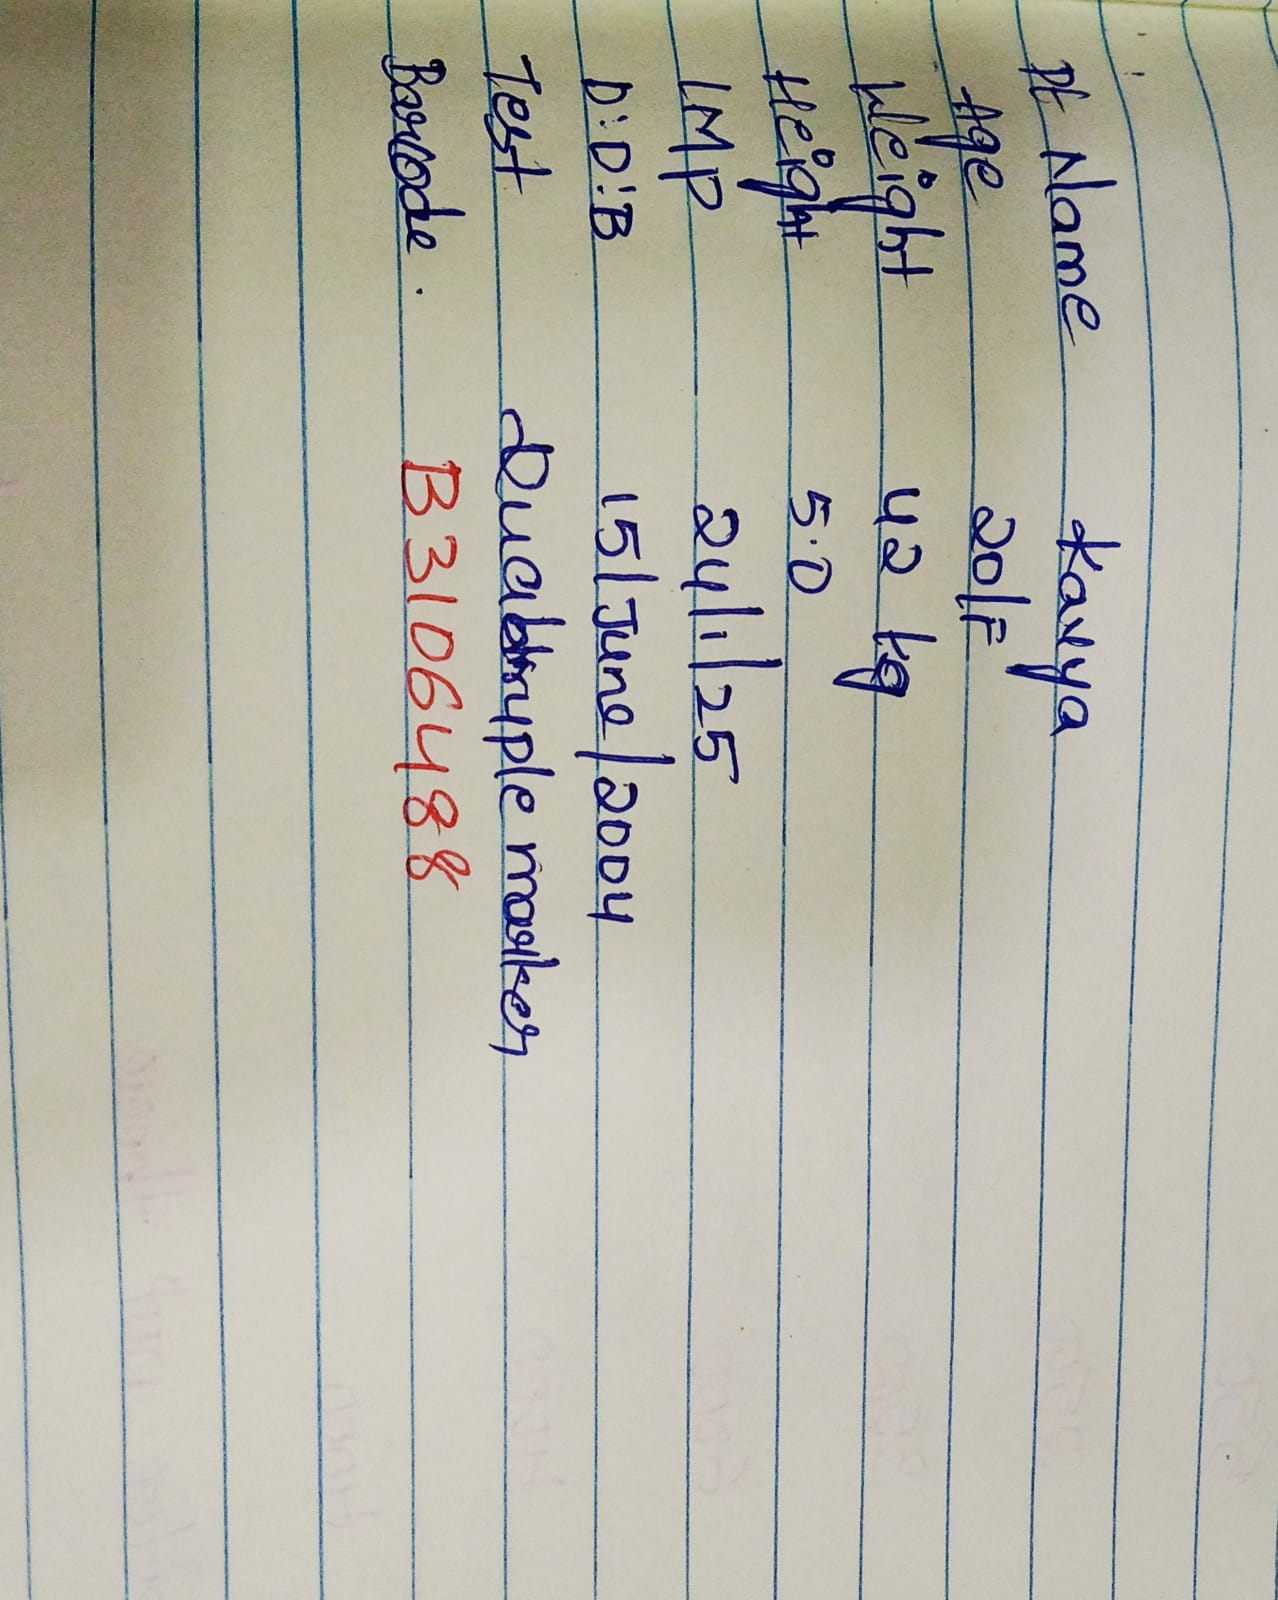 Pt Name Kavya
Age 20/F
Weight 42 kg
Height 5.0
LMP 24/1/25
D:D:B 15/June/2004
Test Quadruple marker
Barcode. B3106488